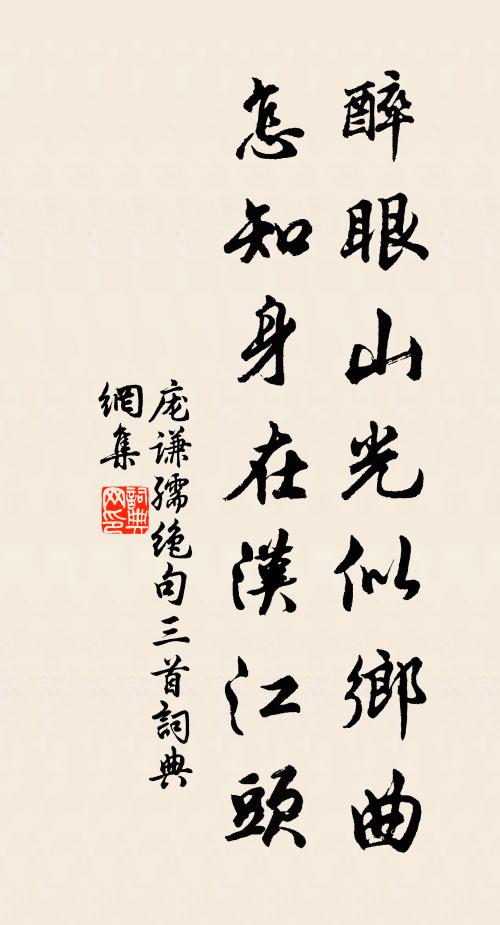 醉眼山光似鄉曲
怎知身在漢江頭
庞谦孺絶句三首詞典
網集
詞典
网印